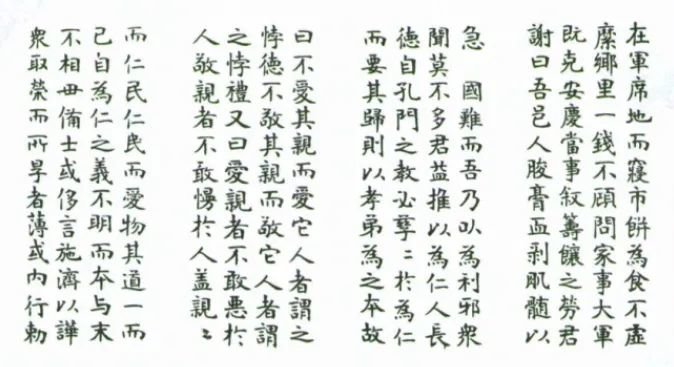 在軍席地而寢市餅為食不虛
糜鄉里一錢不顧問家事大軍
既克安慶當事敘籌饟之勞君
謝曰吾邑人朘膏血剥肌髓以
急　國難而吾乃以為利邪衆
聞莫不多君益推以為仁人長
德自孔門之教必孳〻於為仁
而要其歸則以孝弟為之本故
曰不愛其親而愛它人者謂之
悖德不敬其親而敬它人者謂
之悖禮又曰愛親者不敢惡於
人敬親者不敢慢於人盖親〻
而仁民仁民而愛物其道一而
己自為仁之義不明而本与末
不相毌備士或侈言施濟以譁
衆取榮而所㫗者薄或內行勅